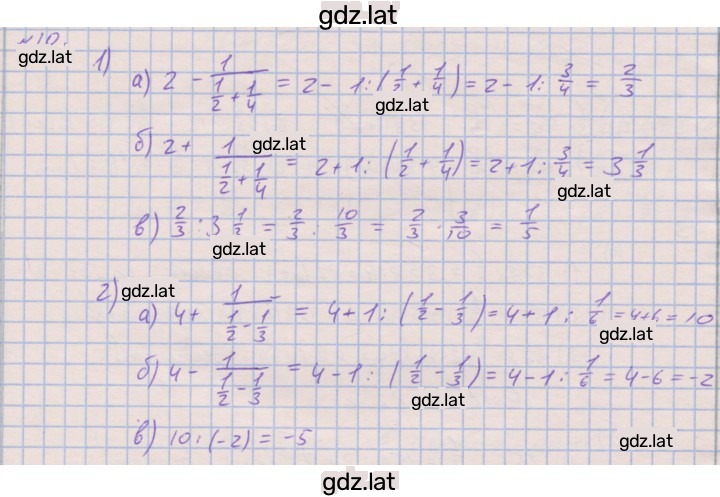 gdz.lat
№10.
gdz.lat
1)
а) 2 - 1/(1/2 + 1/4) = 2 - 1 : (1/2 + 1/4) = 2 - 1 : 3/4 = 2/3
gdz.lat
б) 2 + 1/(1/2 + 1/4) = 2 + 1 : (1/2 + 1/4) = 2 + 1 : 3/4 = 3 1/3
gdz.lat
gdz.lat
в) 2/3 : 3 1/2 = 2/3 : 10/3 = 2/3 · 3/10 = 1/5
gdz.lat
2) gdz.lat
а) 4 + 1/(1/2 - 1/3) = 4 + 1 : (1/2 - 1/3) = 4 + 1 : 1/6 = 4+6 = 10
gdz.lat
б) 4 - 1/(1/2 - 1/3) = 4 - 1 : (1/2 - 1/3) = 4 - 1 : 1/6 = 4 - 6 = -2
gdz.lat
в) 10 : (-2) = -5
gdz.lat
gdz.lat